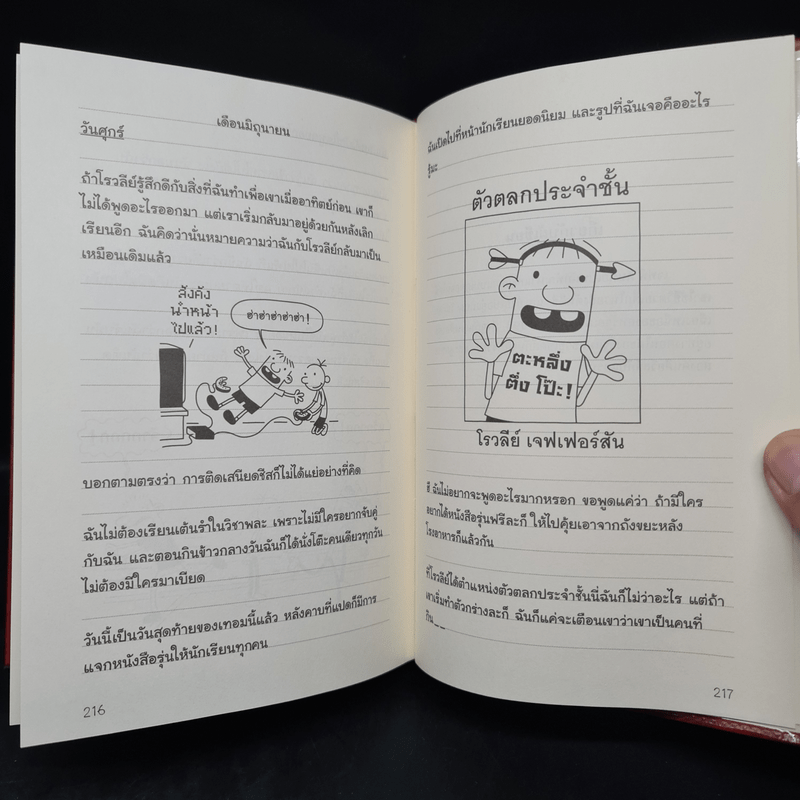 เดือนมิถุนายน
วันศุกร์
ถ้าโรวลีย์รู้สึกดีกับสิ่งที่ฉันทำเพื่อเขาเมื่ออาทิตย์ก่อน เขาก็
ไม่ได้พูดอะไรออกมา แต่เราเริ่มกลับมาอยู่ด้วยกันหลังเลิก
เรียนอีก ฉันคิดว่านั่นหมายความว่าฉันกับโรวลีย์กลับมาเป็น
เหมือนเดิมแล้ว
สังคัง
นำหน้า
ไปแล้ว!
ฮ่าฮ่าฮ่าฮ่าฮ่า!
บอกตามตรงว่า การติดเสนียดชีสก็ไม่ได้แย่อย่างที่คิด
ฉันไม่ต้องเรียนเต้นรำในวิชาพละ เพราะไม่มีใครอยากจับคู่
กับฉัน และตอนกินข้าวกลางวันฉันก็ได้นั่งโต๊ะคนเดียวทุกวัน
ไม่ต้องมีใครมาเบียด
วันนี้เป็นวันสุดท้ายของเทอมนี้แล้ว หลังคาบที่แปดก็มีการ
แจกหนังสือรุ่นให้นักเรียนทุกคน
216
ฉันเปิดไปที่หน้านักเรียนยอดนิยม และรูปที่ฉันเจอคืออะไร
รู้มะ
ตัวตลกประจำชั้น
ตะหลึ่ง
ตึ่ง โป๊ะ!
โรวลีย์ เจฟเฟอร์สัน
ฮึ ฉันไม่อยากจะพูดอะไรมากหรอก ขอพูดแค่ว่า ถ้ามีใคร
อยากได้หนังสือรุ่นฟรีละก็ ให้ไปคุ้ยเอาจากถังขยะหลัง
โรงอาหารก็แล้วกัน
ที่โรวลีย์ได้ตำแหน่งตัวตลกประจำชั้นนี่ฉันก็ไม่ว่าอะไร แต่ถ้า
เขาเริ่มทำตัวกร่างละก็ ฉันก็แค่จะเตือนเขาว่าเขาเป็นคนที่
กิน__
217